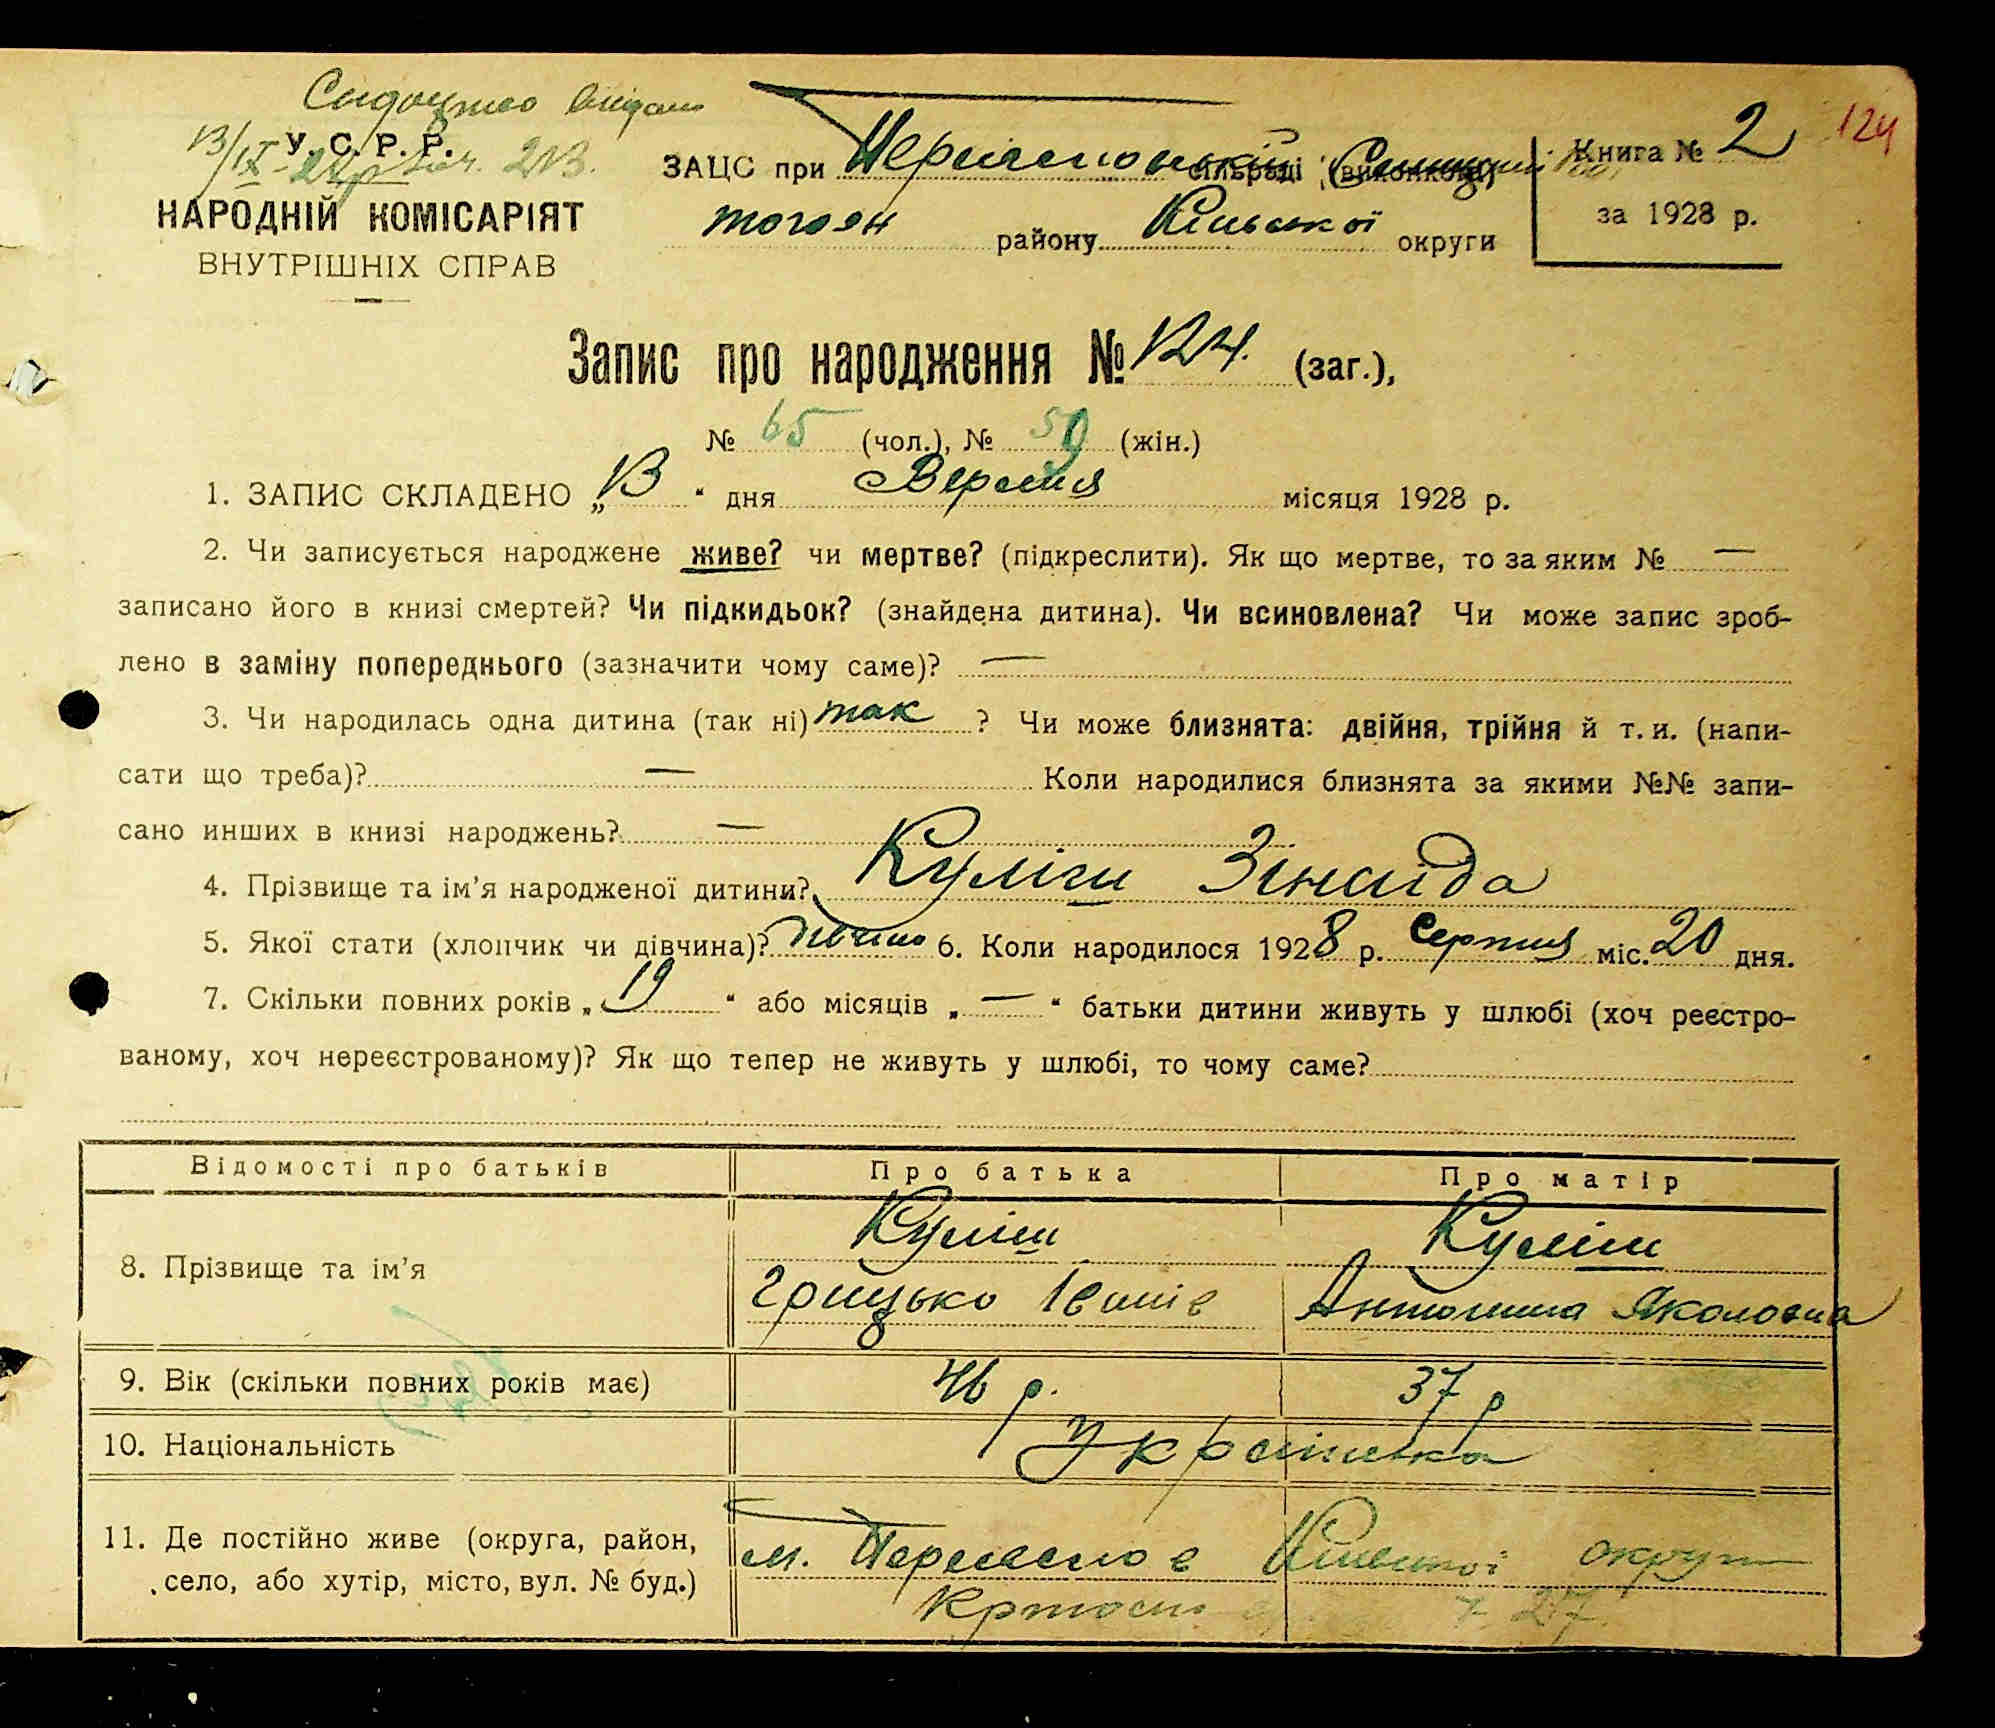 У. С. Р. Р.
НАРОДНІЙ КОМІСАРІЯТ
ВНУТРІШНІХ СПРАВ
ЗАЦС при сільраді (виконкомі)
району Київської округи
Книга № 2
за 1928 р.
124
Запис про народження № 124. (заг.),
№ 65 (чол.), № 59 (жін.)
1. ЗАПИС СКЛАДЕНО „13“ дня Вересня місяця 1928 р.
2. Чи записується народжене живе? чи мертве? (підкреслити). Як що мертве, то за яким № —
записано його в книзі смертей? Чи підкидьок? (знайдена дитина). Чи всиновлена? Чи може запис зроб-
лено в заміну попереднього (зазначити чому саме)? —
3. Чи народилась одна дитина (так ні) так ? Чи може близнята: двійня, трійня й т. и. (напи-
сати що треба)? — Коли народилися близнята за якими №№ запи-
сано инших в книзі народжень? —
4. Прізвище та ім’я народженої дитини? Куліш Зінаїда
5. Якої стати (хлопчик чи дівчина)? 6. Коли народилося 1928 р. Серпня міс. 20 дня.
7. Скільки повних років „19“ або місяців „—“ батьки дитини живуть у шлюбі (хоч реєстро-
ваному, хоч нереєстрованому)? Як що тепер не живуть у шлюбі, то чому саме?
Відомості про батьків Про батька Про матір
8. Прізвище та ім’я Куліш Куліш
Грицько Іванів Антонина Яковловна
9. Вік (скільки повних років має) 46 р. 37 р
10. Національність Українська
11. Де постійно живе (округа, район, м. Переяслов Київської округи
село, або хутір, місто, вул. № буд.) 27